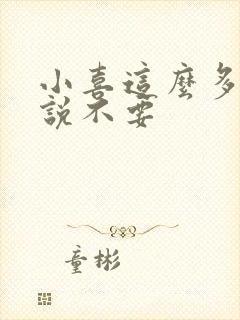 小喜這麼多
說不要
童彬